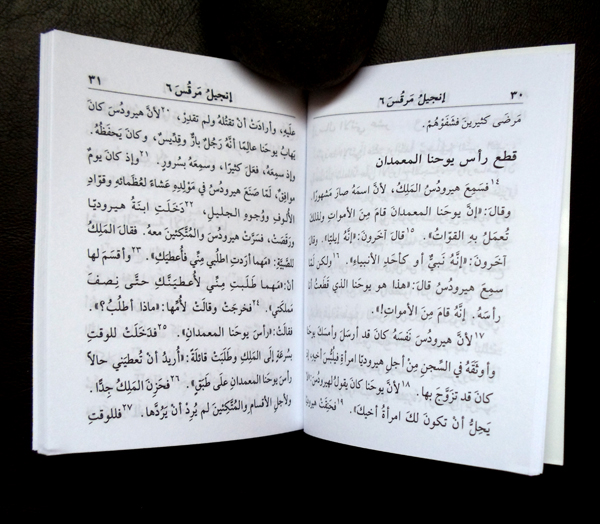 ٣٠ إنجيلُ مَرقُسَ ٦
مَرضَى كثيرينَ فشَفَوْهُمْ.
قطع رأس يوحنا المعمدان
١٤فسَمِعَ هيرودُسُ المَلِكُ، لأنَّ اسمَهُ صارَ مَشهورًا.
وقالَ: «إنَّ يوحنا المعمدانَ قامَ مِنَ الأمواتِ ولذلكَ
تُعمَلُ بهِ القوّاتُ». ١٥قالَ آخَرونَ: «إنَّهُ إيليّا». وقالَ
آخَرونَ: «إنَّهُ نَبيٌّ أو كأحَدِ الأنبياءِ». ١٦ولكن لَمّا
سمِعَ هيرودُسُ قالَ: «هذا هو يوحنا الذي قَطَعتُ أنا
رأسَهُ. إنَّهُ قامَ مِنَ الأمواتِ!».
١٧لأنَّ هيرودُسَ نَفسَهُ كانَ قد أرسَلَ وأمسَكَ يوحنا
وأوثَقَهُ في السِّجنِ مِنْ أجلِ هيروديّا امرأةِ فيلُبُّسَ أخيهِ، إذ
كانَ قد تزَوَّجَ بها. ١٨لأنَّ يوحنا كانَ يقولُ لهيرودُسَ:
يَحِلُّ أنْ تكونَ لكَ امرأةُ أخيكَ». ١٩فحَنِقَتْ هيروديا
٣١ إنجيلُ مَرقُسَ ٦
علَيهِ، وأرادَتْ أنْ تقتُلهُ ولم تقدِرْ، ٢٠لأنَّ هيرودُسَ كانَ
يَهابُ يوحنا عالِمًا أنَّهُ رَجُلٌ بارٌّ وقِدّيسٌ، وكانَ يَحفَظُهُ.
وإذ سمِعَهُ، فعَلَ كثيرًا، وسمِعَهُ بسُرورٍ. ٢١وإذ كانَ يومٌ
موافِقٌ، لَمّا صَنَعَ هيرودُسُ في مَولِدِهِ عَشاءً لعُظَمائهِ وقوّادِ
الأُلوفِ ووُجوهِ الجليلِ، ٢٢دَخَلَتِ ابنَةُ هيروديّا
ورَقَصَتْ، فسَرَّتْ هيرودُسَ والمُتَّكِئينَ معهُ. فقالَ المَلِكُ
للصَّبيَّةِ: «مَهما أرَدتِ اطلُبي مِنّي فأُعطيَكِ». ٢٣وأقسَمَ لها
أنْ: «مَهما طَلَبتِ مِنّي لأُعطيَنَّكِ حتَّى نِصفَ
مَملكَتي». ٢٤فخرجَتْ وقالَتْ لأُمِّها: «ماذا أطلُبُ؟».
فقالَتْ: «رأسَ يوحنا المعمدانِ». ٢٥فدَخَلَتْ للوقتِ
بسُرعَةٍ إلَى المَلِكِ وطَلَبَتْ قائلَةً: «أُريدُ أنْ تُعطيَني حالاً
رأسَ يوحنا المعمدانِ علَى طَبَقٍ». ٢٦فحَزِنَ المَلِكُ جِدًّا.
ولأجلِ الأقسامِ والمُتَّكِئينَ لم يُرِدْ أنْ يَرُدَّها. ٢٧فللوقتِ